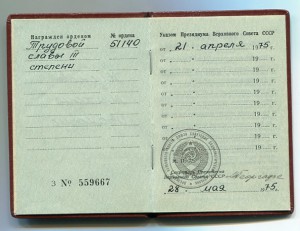 Награжден орденом
№ ордена
Трудовой 51140
славы III
степени
З № 559667
Указом Президиума Верховного Совета СССР
от 21 апреля 1975.
от 19 г.
от 19 г.
от 19 г.
от 19 г.
от 19 г.
от 19 г.
от 19 г.
Секретарь Президиума
Верховного Совета
28 мая 1975.